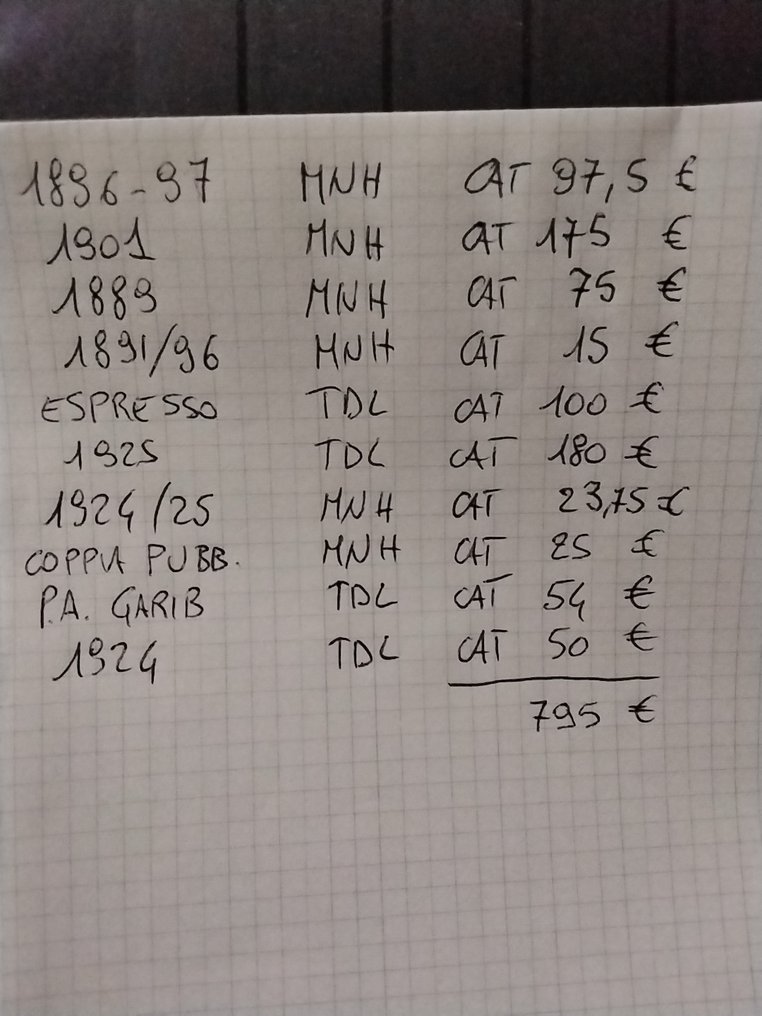 1896-97 MNH CAT 97,5 €
1901 MNH CAT 175 €
1889 MNH CAT 75 €
1891/96 MNH CAT 15 €
ESPRESSO TDL CAT 100 €
1925 TDL CAT 180 €
1924/25 MNH CAT 23,75 €
COPPIA PUBB. MNH CAT 25 €
P.A. GARIB TDL CAT 54 €
1924 TDL CAT 50 €
795 €